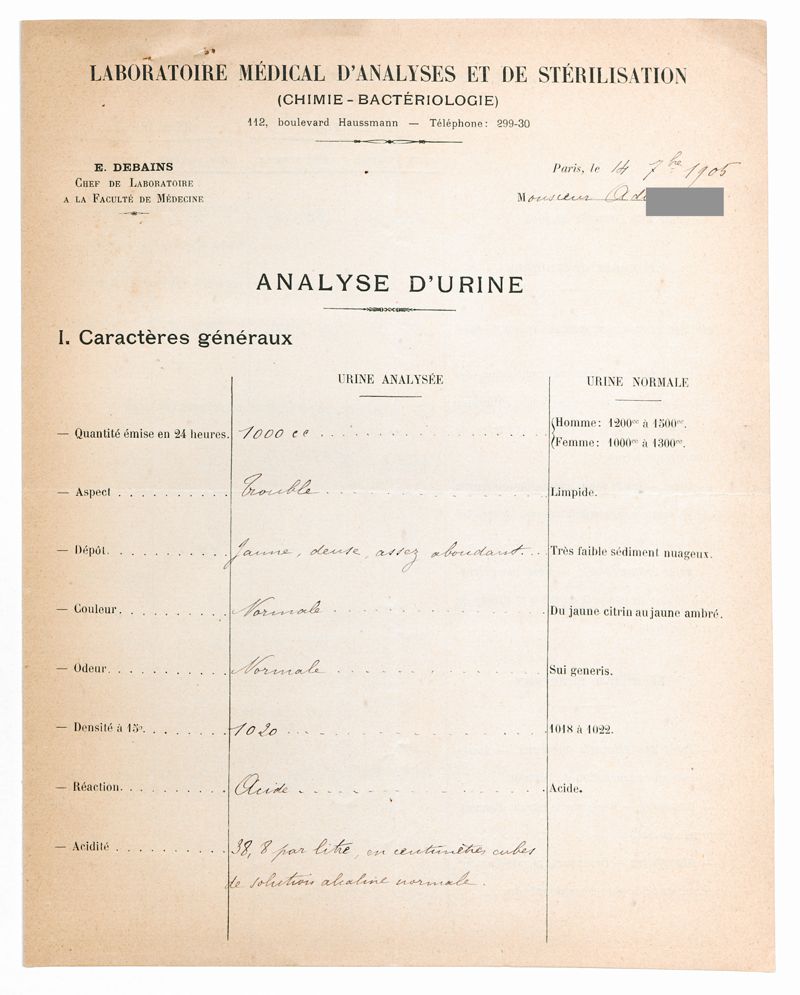 LABORATOIRE MÉDICAL D'ANALYSES ET DE STÉRILISATION
(CHIMIE - BACTÉRIOLOGIE)
112, boulevard Haussmann — Téléphone: 299-30
E. DEBAINS
CHEF DE LABORATOIRE
A LA FACULTÉ DE MÉDECINE
Paris, le 14 7bre 1905
Monsieur
ANALYSE D'URINE
I. Caractères généraux
URINE ANALYSÉE URINE NORMALE
— Quantité émise en 24 heures. 1000 cc Homme: 1200cc à 1500cc.
Femme: 1000cc à 1300cc.
— Aspect Trouble Limpide.
— Dépôt. Jaune, dense, assez abondant. Très faible sédiment nuageux.
— Couleur. Normale Du jaune citrin au jaune ambré.
— Odeur. Normale Sui generis.
— Densité à 15o. 1020 1018 à 1022.
— Réaction. Acide Acide.
— Acidité 38,8 par litre, en centimètres cubes
de solution alcaline normale.